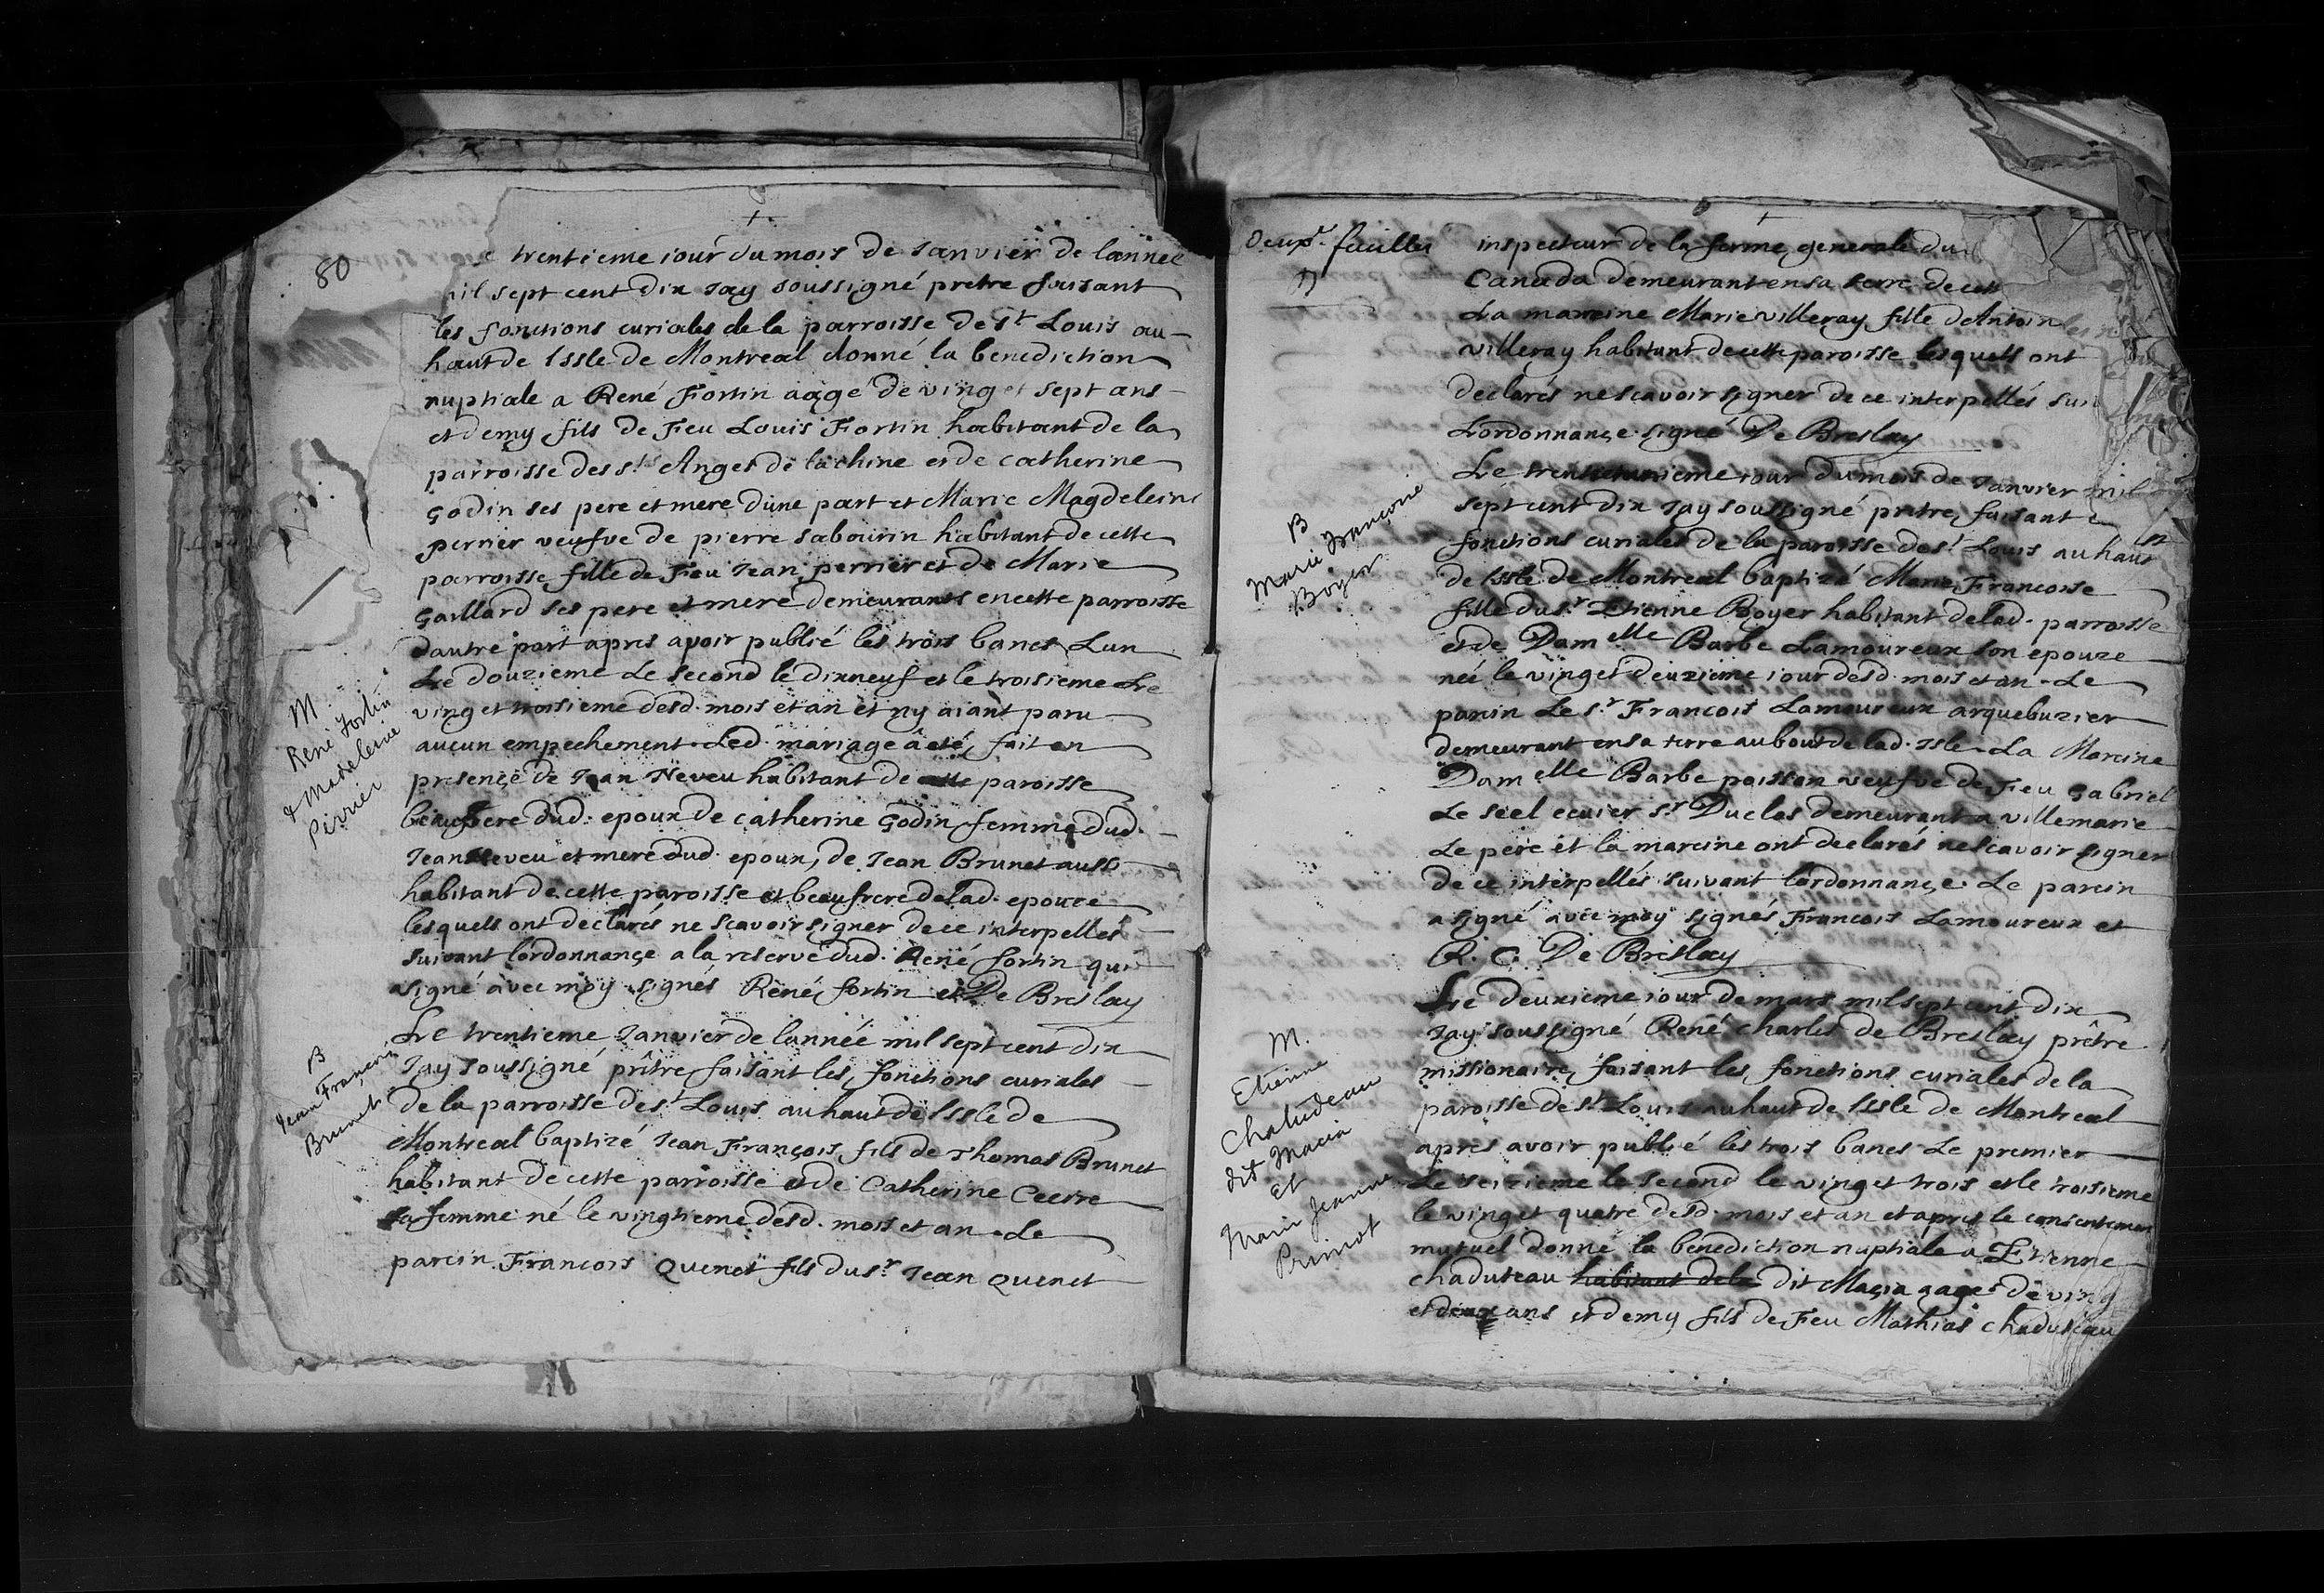 80
trentieme iour du mois de Janvier de lannee
mil sept cent dix Jay soussigné pretre faisant
les fonctions curiales de la parroisse de st Louis au
haut de lssle de Montreal donné la benediction
nuptiale a René Fortin aagé de ving et sept ans
et demy fils de Feu Louis Fortin habitant de la
parroisse des sts Anges de lachine et de catherine
Godin ses pere et mere dune part et Marie Magdeleine
perrier veufve de pierre sabourin habitant de cette
parroisse fille de Feu Jean perrier et de Marie
Gaillard ses pere et mere demeurants en cette parroisse
dautre part apres avoir publié les trois bancs Lun
Le douzieme Le second le dixneuf et le troisieme Le
ving et troisieme desd. mois et an et ny aiant paru
aucun empechement Led. mariage â eté fait en
presençe de Jean Neveu habitant de cette paroisse
beaupere dud. epoux de catherine Godin femme dud.
Jean Neveu et mere dud. epoux, de Jean Brunet aussi
habitant de cette paroisse et beaufrere de lad. epouze
lesquels ont declarés ne scavoir signer de ce interpellés
suivant lordonnançe a la reserve dud. René fortin qui
a signé avec moy signés René fortin et De Breslay
M
René Fortin
& Madeleine
Perrier
B
Jean François
Brunet
Le trentieme Janvier de lannée mil sept cent dix
Jay soussigné prêtre faisant les fonctions curiales
de la parroisse de st Louis au haut de lssle de
Montreal baptizé Jean François fils de Thomas Brunet
habitant de cette parroisse et de Catherine Ceecire
sa femme né le vingtieme desd. mois et an Le
parein Francois Quenet fils du sr Jean Quenet
Deuxe feuillet
inspecteur de la ferme generale du
Canada demeurant en sa terre de cett
La mareine Marie villeray fille dAntoin
villeray habitant de cette paroisse lesquels ont
declarés ne scavoir signer de ce interpellés sui
Lordonnançe signé De Breslay
B
Marie Françoise
Boyer
Le trentetunieme iour du mois de Janvier mil
sept cent dix Jay soussigné prêtre faisant
fonctions curiales de la paroisse de st Louis au haut
de lssle de Montreal baptizé Marie Francoise
fille du sr Etienne Boyer habitant de lad. parroisse
et de Damelle Barbe Lamoureux son epouze
née le ving et deuzieme iour desd. mois et an Le
parein Le sr François Lamoureux arquebuzier
demeurant en sa terre au bout de lad. Isle La Mareine
Damelle Barbe poisson veufve de Feu Gabriel
Le seel ecuier sr Duclos demeurant a villemarie
Le pere et la mareine ont declarés ne scavoir signer
de ce interpellés suivant lordonnançe Le parein
a signé avec moy signés Francois Lamoureux et
R. C. De Breslay
M.
Etienne
Chatudeau
dit Macia
et
Marie Jeanne
Primot
Le deuxieme iour de mars mil sept cent dix
Jay soussigné René charles de Breslay prêtre
missionaire faisant les fonctions curiales de la
paroisse de st Louis au haut de lssle de Montreal
apres avoir publié les trois bancs Le premier
Le seizieme le second le ving et trois et le troisieme
le ving et quatre desd. mois et an et apres le consentemen
mutuel donné la benediction nuptiale a Etienne
chaduteau habitant de la dit Maçia aagé de ving
et deux ans et demy fils de Feu Mathias chaduteau